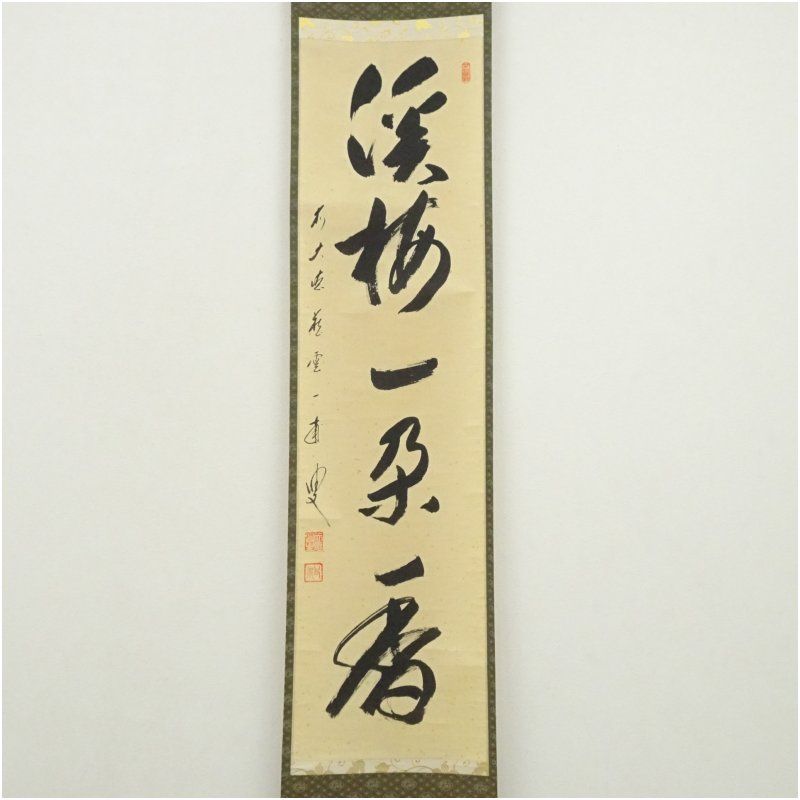 渓梅一朶香
前大徳藤雲一道叟